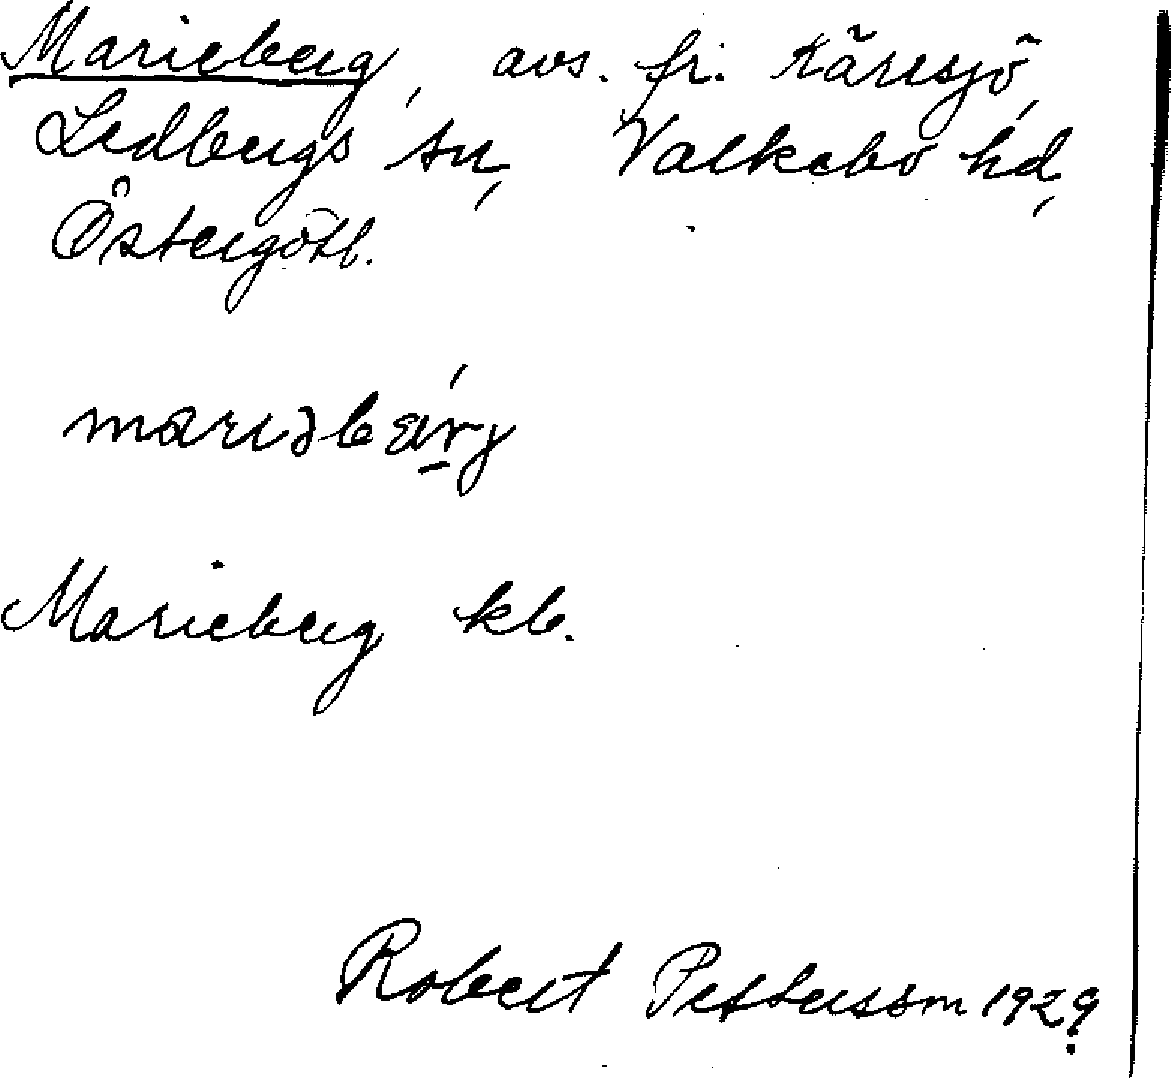 Marieberg, avs. fr. Kärrsjö,
Ledbergs sn, Valkebo hd,
Östergötl.
marıɔbǽrj
Marieberg kb.
Robert Pettersson 1929.